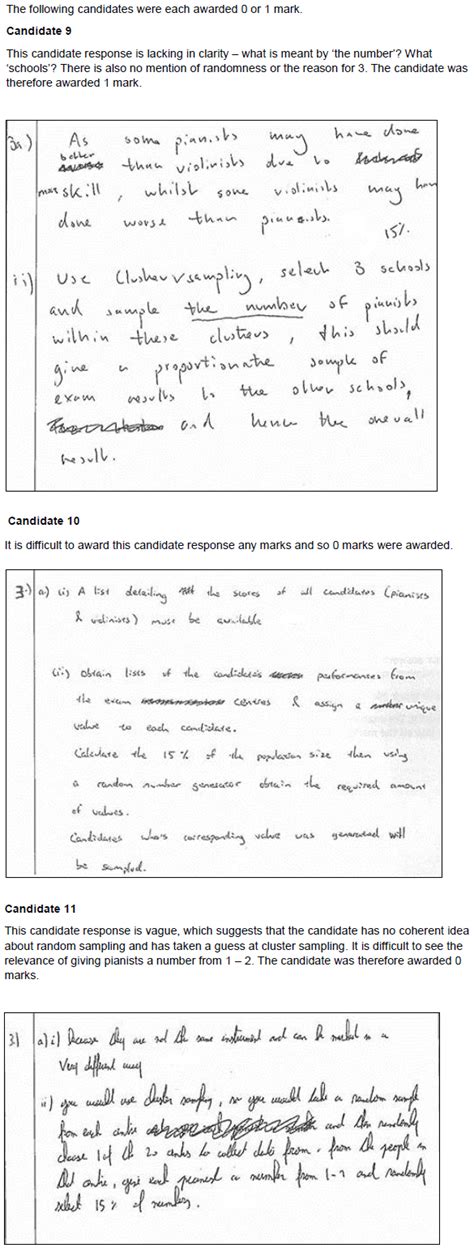 The following candidates were each awarded 0 or 1 mark.
Candidate 9
This candidate response is lacking in clarity – what is meant by ‘the number’? What
‘schools’? There is also no mention of randomness or the reason for 3. The candidate was
therefore awarded 1 mark.
3a.) As some pianists may have done
better than violinists due to
skill, whilst some violinists may have
done worse than pianists.
15%
ii) Use Cluster sampling, select 3 schools
and sample the number of pianists
within these clusters, this should
give a proportionate sample of
exam results to the other schools,
and hence the overall
result.
Candidate 10
It is difficult to award this candidate response any marks and so 0 marks were awarded.
3.) a) (i) A list detailing the scores of all candidates (pianises
& violinists) must be available
(ii) obtain lists of the candidates performances from
the exam centres & assign a unique
value to each candidate.
Calculate the 15% of the population size then using
a random number generator obtain the required amount
of values.
Candidates who's corresponding value was generated will
be sampled.
Candidate 11
This candidate response is vague, which suggests that the candidate has no coherent idea
about random sampling and has taken a guess at cluster sampling. It is difficult to see the
relevance of giving pianists a number from 1 – 2. The candidate was therefore awarded 0
marks.
3) a) i) Because they are not the same instrument and can be marked in a
Very different way
ii) you would use cluster sampling, so you would take a random sample
from each centre and then randomly
choose 1 of the 20 centres to collect data from, from the people in
that centre, give each pianist a number from 1-2 and randomly
select 15% of numbers.